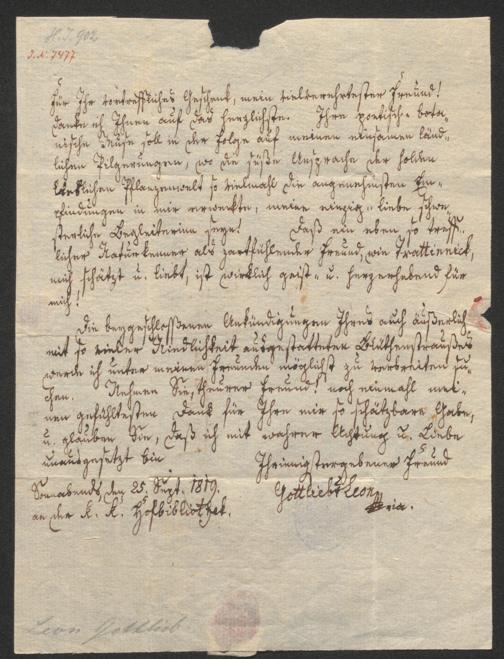 H.I. 902
I.N. 7477
Für Ihr vortreffliches Geschenk, mein vielverehrtester Freund!
danke ich Ihnen auf das herzlichste. Ihre poetisch-bota-
nische Muse soll in der Folge auf meinen einsamen länd-
lichen Pilgerungen, wo die süße Ansprache der holden
lieblichen Pflanzenwelt so vielmahl die angenehmsten Em-
pfindungen in mir erweckte, meine einzig-liebe schwe-
sterliche Begleiterinn seyn! Daß ein eben so treff-
licher Naturkenner als zartfühlender Freund, wie Trattinnick,
mich schätzt u. liebt, ist wirklich geist- u. herzerhebend für
mich!
Die beygeschlossenen Ankündigungen Ihres auch äußerlich
mit so vieler Niedlichkeit ausgestatteten Blüthenstraußes
werde ich unter meinen Freunden möglichst zu verbreiten su-
chen. Nehmen Sie, theurer Freund! noch einmahl mei-
nen gefühltesten Dank für Ihre mir so schätzbare Gabe,
u. glauben Sie, daß ich mit wahrer Achtung u. Liebe
unausgesetzt bin
Ihr innigstergebener Freund
Sonnabends, den 25. Sept. 1819.
Gottlieb Leon
an der k. k. Hofbibliothek.
Leon Gottlieb